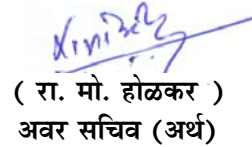 ( रा. मो. होळकर )
अवर सचिव (अर्थ)